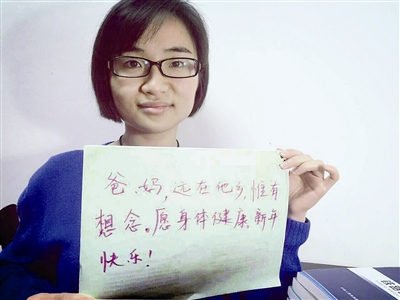 爸、妈,远在他乡,惟有
想念。愿身体健康,新年
快乐!